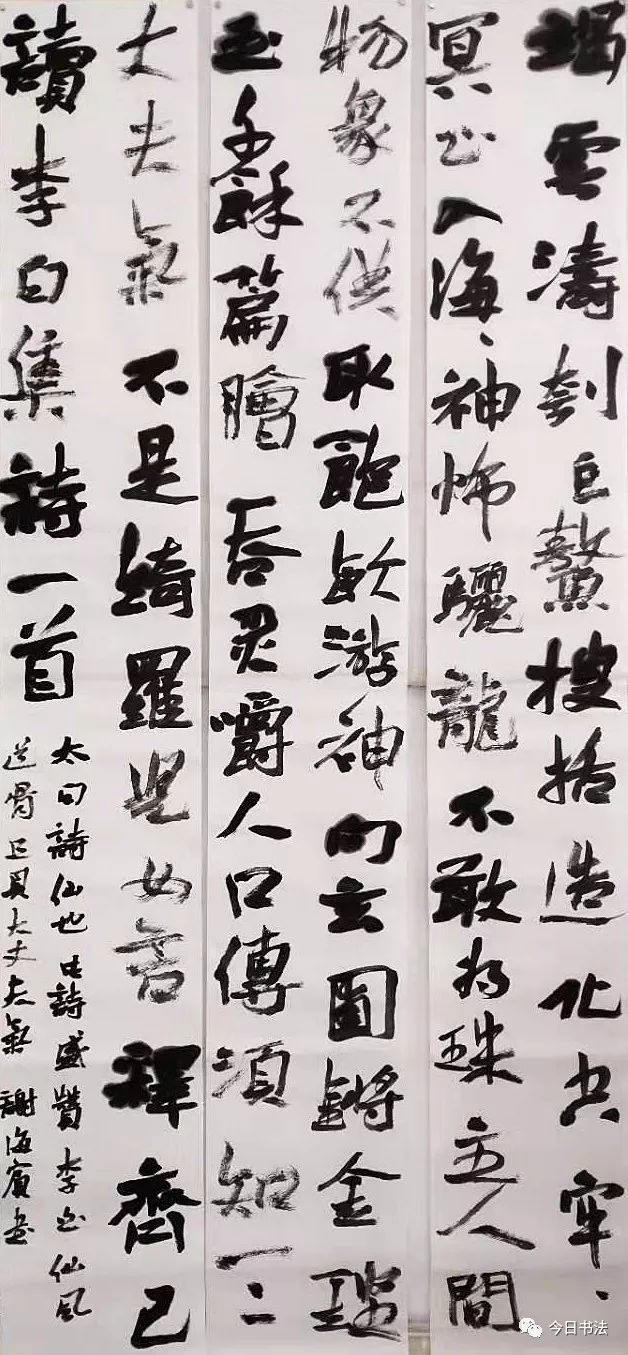 竭雲濤刳巨鰲搜括造化空牢、
冥心入海、神怖驪龍不敢為珠主人間
物象不供取飽飲游神向玄圃鏘金鏗
玉千餘篇膾吞炙嚼人口傳須知一二
丈夫氣不是綺羅兒女言釋齊己
讀李白集詩一首
太白詩仙也此詩盛贊李白仙風
道骨且具大丈夫氣 謝海賓書
今日书法